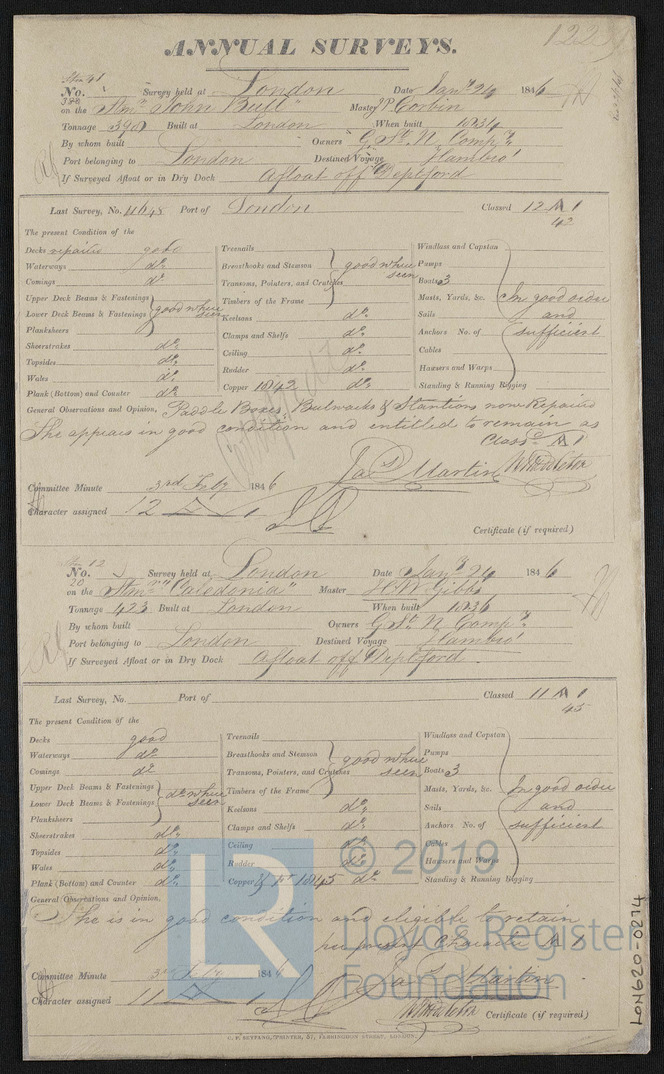 ANNUAL SURVEYS.
No. Survey held at London Date Jany 26 1846
on the Stmr "John Bull" Master J P Corbin
Tonnage 398 Built at London When built 1834
By whom built Owners G St. N. Compy.
Port belonging to London Destined Voyage Hambro'
If Surveyed Afloat or in Dry Dock Afloat off Deptford
Last Survey, No. Port of London Classed 12 A 1
42
The present Condition of the
Decks repaired good
Waterways do.
Comings do.
Upper Deck Beams & Fastenings
Lower Deck Beams & Fastenings good where seen
Planksheers
Sheerstrakes do.
Topsides do.
Wales do.
Plank (Bottom) and Counter do.
Treenails
Breasthooks and Stemson good where seen
Transoms, Pointers, and Crutches
Timbers of the Frame
Keelsons do.
Clamps and Shelfs do.
Ceiling do.
Rudder do.
Copper 1842 do.
Windlass and Capstan
Pumps
Boats 3
Masts, Yards, &c. In good order
Sails and
Anchors No. of sufficient
Cables
Hawsers and Warps
Standing & Running Rigging
General Observations and Opinion, Paddle Boxes, Bulwarks & Stantions now Repaired
She appears in good condition and entitled to remain as
Classd A 1
Jas Martin W Middleton
Committee Minute 3rd Feby 1846
Character assigned 12 A 1
Certificate (if required)
No. 12 Survey held at London Date Jany 26 1846
20
on the Stmr "Caledonia" Master H W Gibbs
Tonnage 423 Built at London When built 1836
By whom built Owners G St. N Compy.
Port belonging to London Destined Voyage Hambro'
If Surveyed Afloat or in Dry Dock Afloat off Deptford
Last Survey, No. Port of Classed 11 A 1
45
The present Condition of the
Decks good
Waterways do.
Comings do.
Upper Deck Beams & Fastenings
Lower Deck Beams & Fastenings do. where seen
Planksheers
Sheerstrakes do.
Topsides do.
Wales do.
Plank (Bottom) and Counter do.
Treenails
Breasthooks and Stemson good where seen
Transoms, Pointers, and Crutches
Timbers of the Frame
Keelsons do.
Clamps and Shelfs do.
Ceiling do.
Rudder do.
Copper 1845 do.
Windlass and Capstan
Pumps
Boats 3
Masts, Yards, &c. In good order
Sails and
Anchors No. of sufficient
Cables
Hawsers and Warps
Standing & Running Rigging
General Observations and Opinion,
She is in good condition and eligible to retain
her present Character A 1
Jas Martin
W Middleton
Committee Minute 3rd Feby 1846
Character assigned 11 A 1
Certificate (if required)
C. F. SEYFANG, PRINTER, 57, FARRINGDON STREET, LONDON.
LON620-0274
LR
© 2019
Lloyd's Register
Foundation